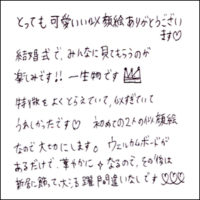 とっても可愛いい似顔絵ありがとうござい
ます♡
結婚式で、みんなに見てもらうのが
楽しみです!! 一生物です
特徴をよくとらえていて、似すぎていて
うれしかったです♡ 初めての2人の似顔絵
なので大切にします。ウェルカムボードが
あるだけで、華やかになるので、その後は
新居に飾って大活躍間違いなしです♡♡♡